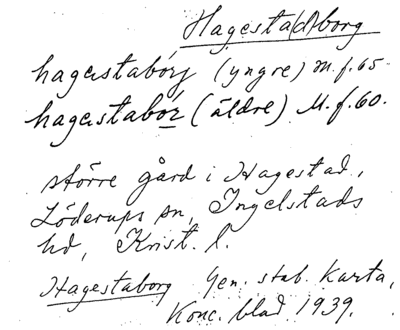 Hagesta(d)borg
hagastabórj (yngre) M. f. 65.
hagastabór (äldre) M. f. 60.
större gård i Hagestad,
Löderups sn, Ingelstads
hd, Krist. l.
Hagestaborg Gen. stab. karta,
Konc. blad 1939.